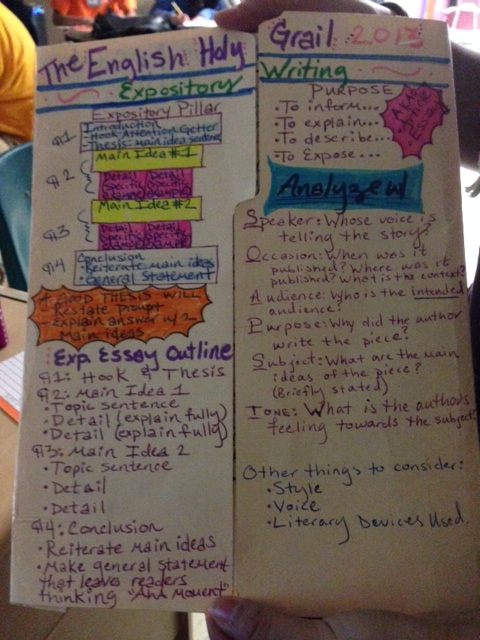 The English Holy Grail 2013
Expository Writing
Expository Pillar
¶1 Introduction
Hook: Attention Getter
Thesis: main idea sentence
¶2 Main Idea #1
Detail Detail
Specific Specific
Main Idea #2
¶3 Detail Detail
Specific Specific
¶4 Conclusion
• Reiterate main ideas
• General Statement
A GOOD THESIS WILL
• Restate Prompt
• Explain answer w/ 2
Main Ideas
Exp. Essay Outline
¶1: Hook & Thesis
¶2: Main Idea 1
• Topic sentence
• Detail (explain fully)
• Detail (explain fully)
¶3: Main Idea 2
• Topic sentence
• Detail
• Detail
¶4: Conclusion
• Reiterate main ideas
• Make general statement
that leaves readers
thinking "Aha Moment"
PURPOSE
• To inform...
• To explain...
• To describe...
• To Expose...
Analyze it
Speaker: Whose voice is
telling the story?
Occasion: When was it
published? Where was it
published? What is the context?
Audience: Who is the intended
audience?
Purpose: Why did the author
write the piece?
Subject: What are the main
ideas of the piece?
(Briefly stated)
Tone: What is the authors
feeling towards the subject
Other things to consider:
• Style
• Voice
• Literary Devices Used.